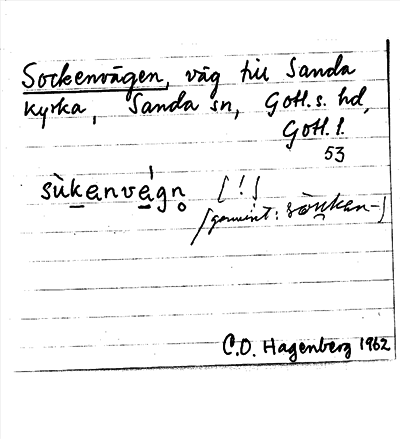 Sockenvägen, väg till Sanda
kyrka, Sanda sn, Gotl. s. hd,
Gotl. l.
53
sùkanvá̱gn̥ [!]
C.O. Hagenberg 1962